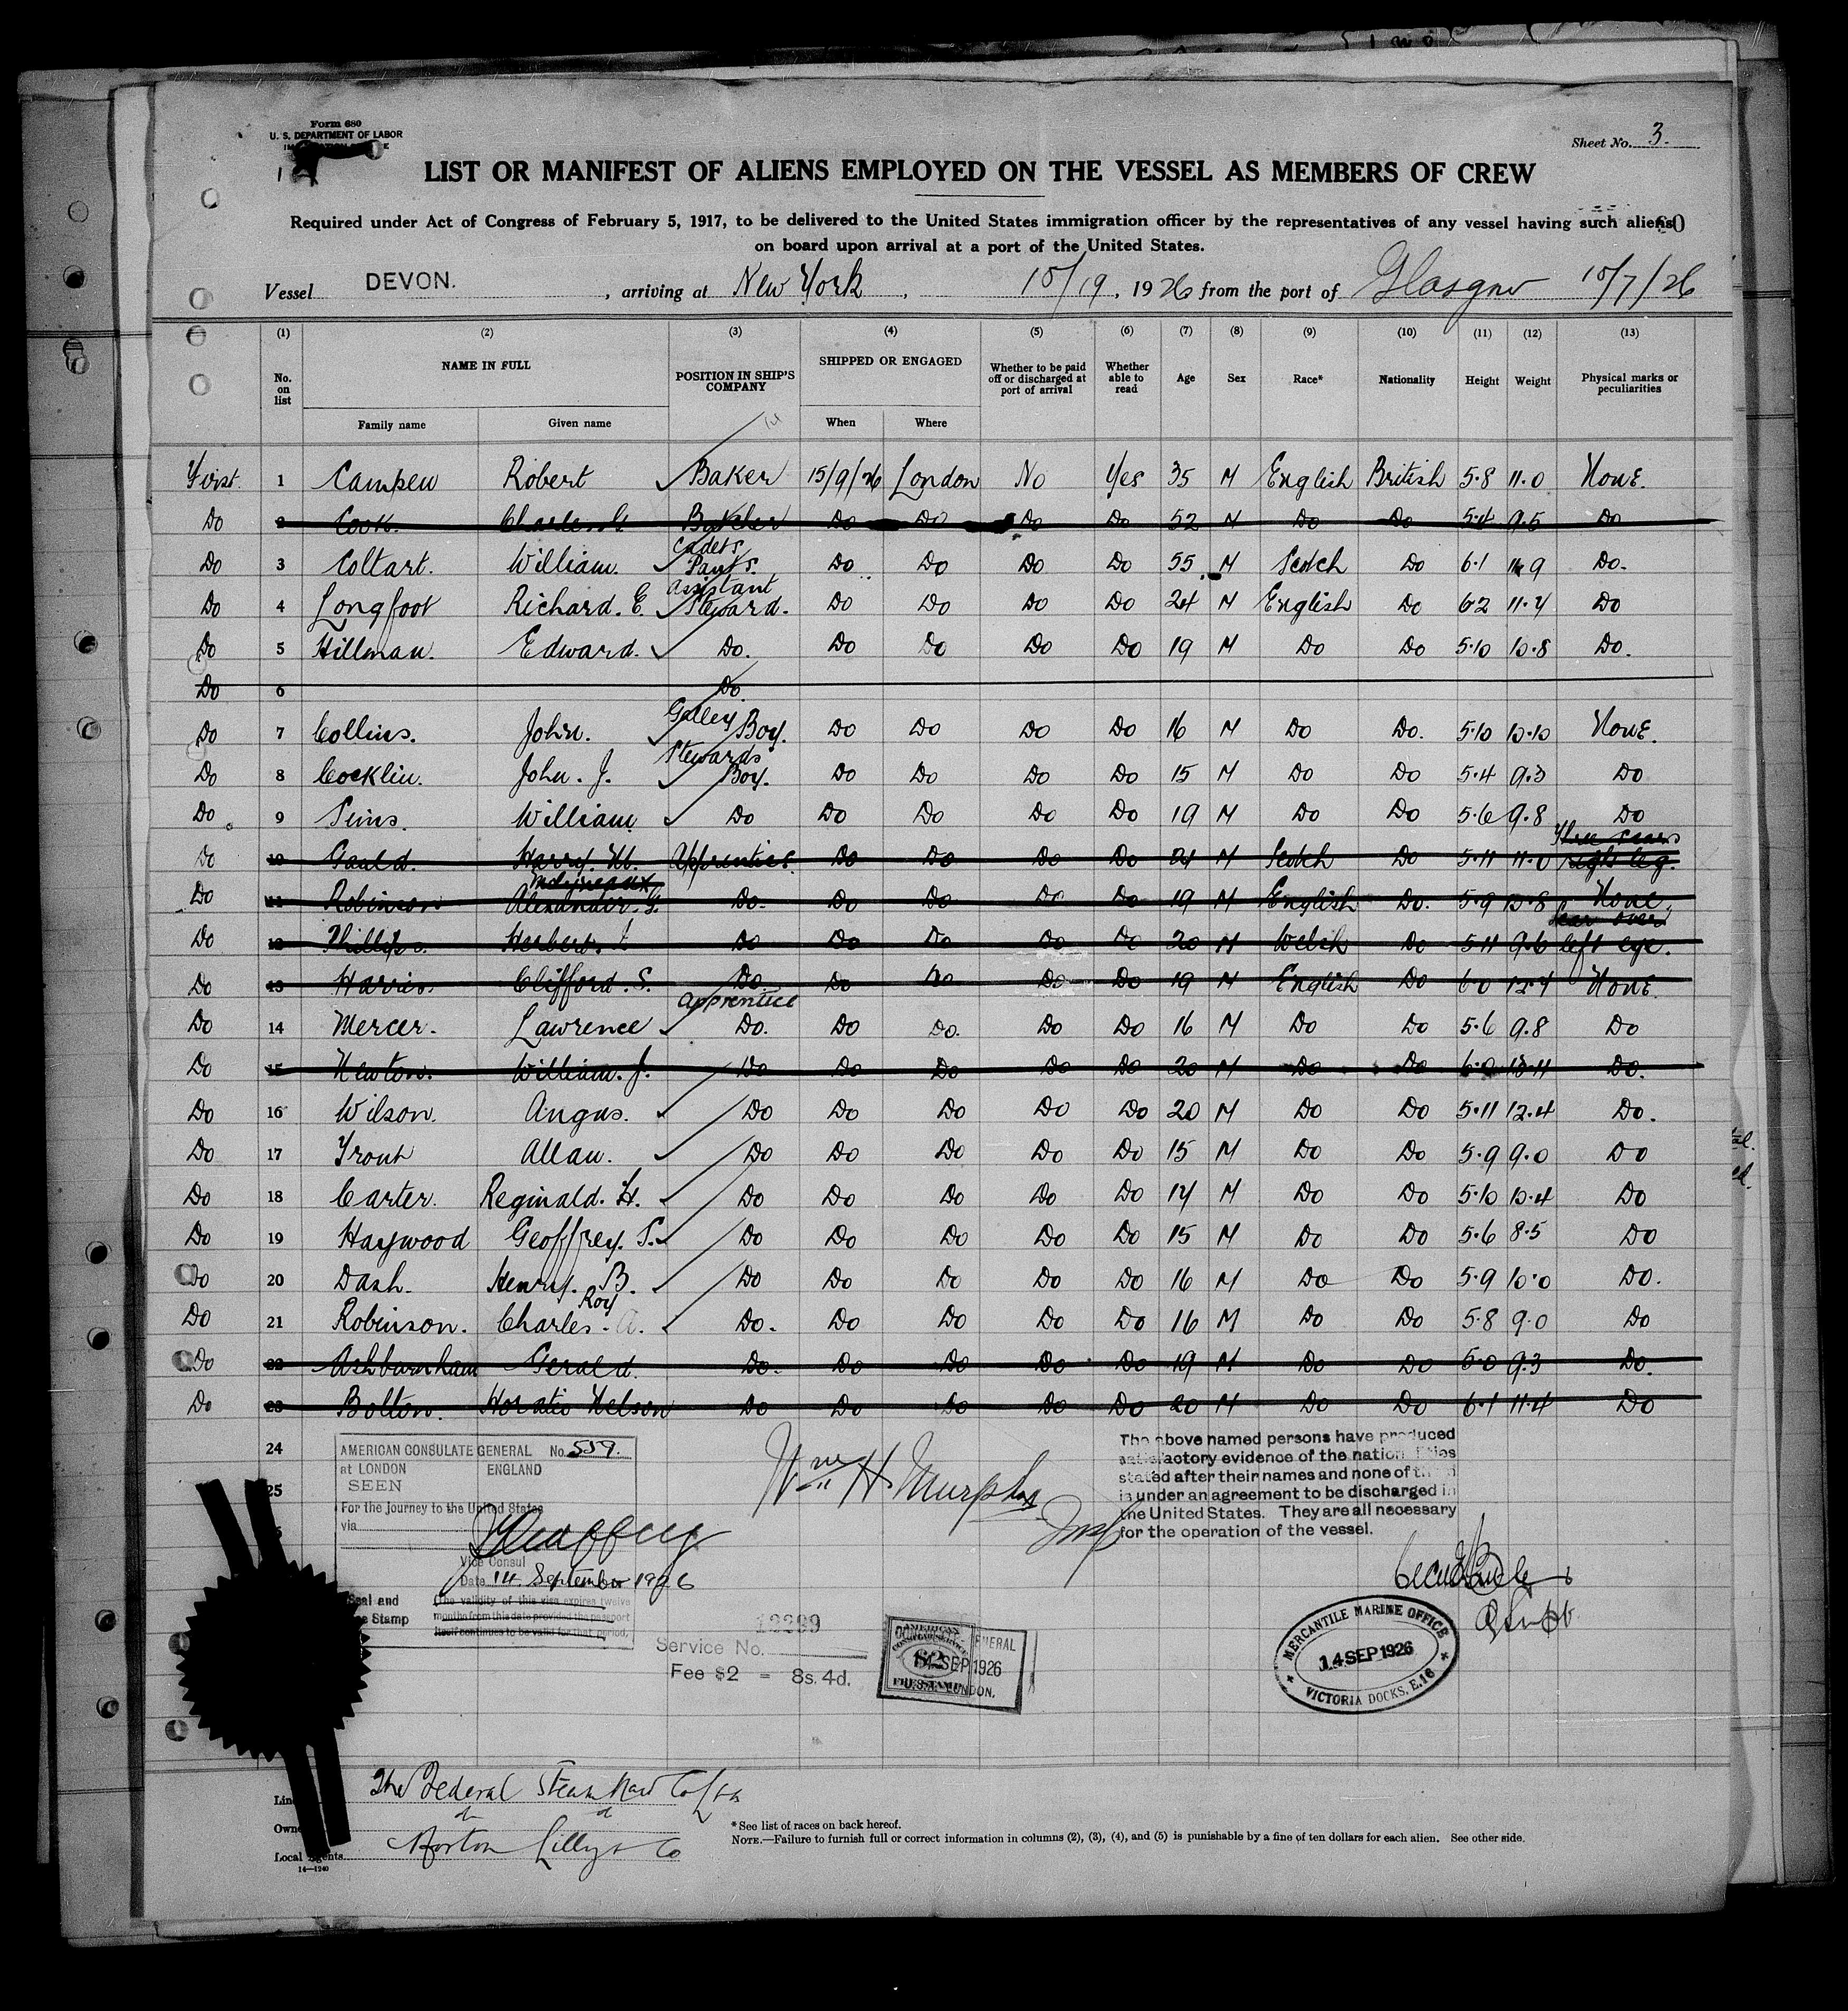 Form 680
U. S. DEPARTMENT OF LABOR
Sheet No. 3.
LIST OR MANIFEST OF ALIENS EMPLOYED ON THE VESSEL AS MEMBERS OF CREW
Required under Act of Congress of February 5, 1917, to be delivered to the United States immigration officer by the representatives of any vessel having such aliens
on board upon arrival at a port of the United States.
Vessel DEVON. , arriving at New York , 10/19 , 1926 from the port of Glasgow 10/7/26
(1) (2) (3) (4) (5) (6) (7) (8) (9) (10) (11) (12) (13)
No. on list NAME IN FULL POSITION IN SHIP'S COMPANY SHIPPED OR ENGAGED Whether to be paid off or discharged at port of arrival Whether able to read Age Sex Race* Nationality Height Weight Physical marks or peculiarities
Family name Given name When Where
First 1 Campen Robert Baker 15/9/26 London No Yes 35 M English British 5.8 11.0 None.
Do 2 Cook. Charles. G. Butcher Do Do Do Do 52 M Do Do 5.4 9.5 Do
Do 3 Coltart. William. Cadets Pant's. Do Do Do Do 55 M Scotch Do 6.1 9 Do.
Do 4 Longfoot Richard. E. Assistant Steward. Do Do Do Do 24 M English Do 6.2 11.4 Do
Do 5 Hillman. Edward. Do. Do Do Do Do 19 M Do Do 5.10 10.8 Do.
Do 6 Do
Do 7 Collins. John. Galley Boy. Do Do Do Do 16 M Do Do. 5.10 10.10 None.
Do 8 Cocklin. John. J. Stewards Boy. Do Do Do Do 15 M Do Do 5.4 9.3 Do
Do 9 Sims. William Do Do Do Do Do 19 M Do Do 5.6 9.8 Do
Do 10 Gauld. Harry. W. Apprentice. Do Do Do Do 21 M Scotch Do 5.11 11.0 Three scars right leg.
Do 11 Robinson Molyneaux Alexander. G. Do. Do Do Do Do 19 M English Do. 5.9 10.8 None.
Do 12 Phillips. Herbert. J. Do Do Do Do Do 20 M Welsh Do 5.11 9.6 Scar over left eye.
Do 13 Harris. Clifford. S. Do. Do Do Do Do 19 M English Do 6.0 12.4 None.
Do 14 Mercer. Lawrence Apprentice Do. Do Do. Do Do 16 M Do Do 5.6 9.8 Do
Do 15 Newton. William. J. Do Do Do Do Do 20 M Do Do 6.0 13.11 Do.
Do 16 Wilson. Angus. Do Do Do Do Do 20 M Do Do 5.11 12.4 Do.
Do 17 Trout Allan. Do Do Do Do Do 15 M Do Do 5.9 9.0 Do
Do 18 Carter. Reginald. H. Do Do Do Do Do 17 M Do Do 5.10 10.4 Do
Do 19 Haywood Geoffrey. S. Do Do Do Do Do 15 M Do Do 5.6 8.5 Do
Do 20 Dash. Henry. B. Do Do Do Do Do 16 M Do Do 5.9 10.0 Do.
Do 21 Robinson. Charles. Roy A. Do. Do Do Do Do 16 M Do Do 5.8 9.0 Do
Do 22 Ashburnham Gerald. Do. Do Do Do Do 19 M Do Do 5.0 9.3 Do.
Do 23 Bolton. Horatio Nelson Do Do Do Do Do 20 M Do Do 6.1 11.4 Do
24
25
AMERICAN CONSULATE GENERAL No. 559.
at LONDON ENGLAND
SEEN
For the journey to the United States
via
Vice Consul
Date 14 September 1926
The validity of this visa expires twelve
months from this date provided the passport
itself continues to be valid for that period.
Seal and
Fee Stamp
Wm H. Murphy
Insp
The above named persons have produced
satisfactory evidence of the nationalities
stated after their names and none of them
is under an agreement to be discharged in
the United States. They are all necessary
for the operation of the vessel.
12299
Service No.
Fee $2 = 8s. 4d.
AMERICAN
CONSULAR SERVICE
$2
FEE STAMP
14 SEP 1926
U.S.A. LONDON.
MERCANTILE MARINE OFFICE
14 SEP 1926
VICTORIA DOCKS. E.16
Line The Federal Steam Nav Co Ltd
Owners do do
Local Agents Norton Lilly & Co
14—1240
* See list of races on back hereof.
NOTE.—Failure to furnish full or correct information in columns (2), (3), (4), and (5) is punishable by a fine of ten dollars for each alien. See other side.